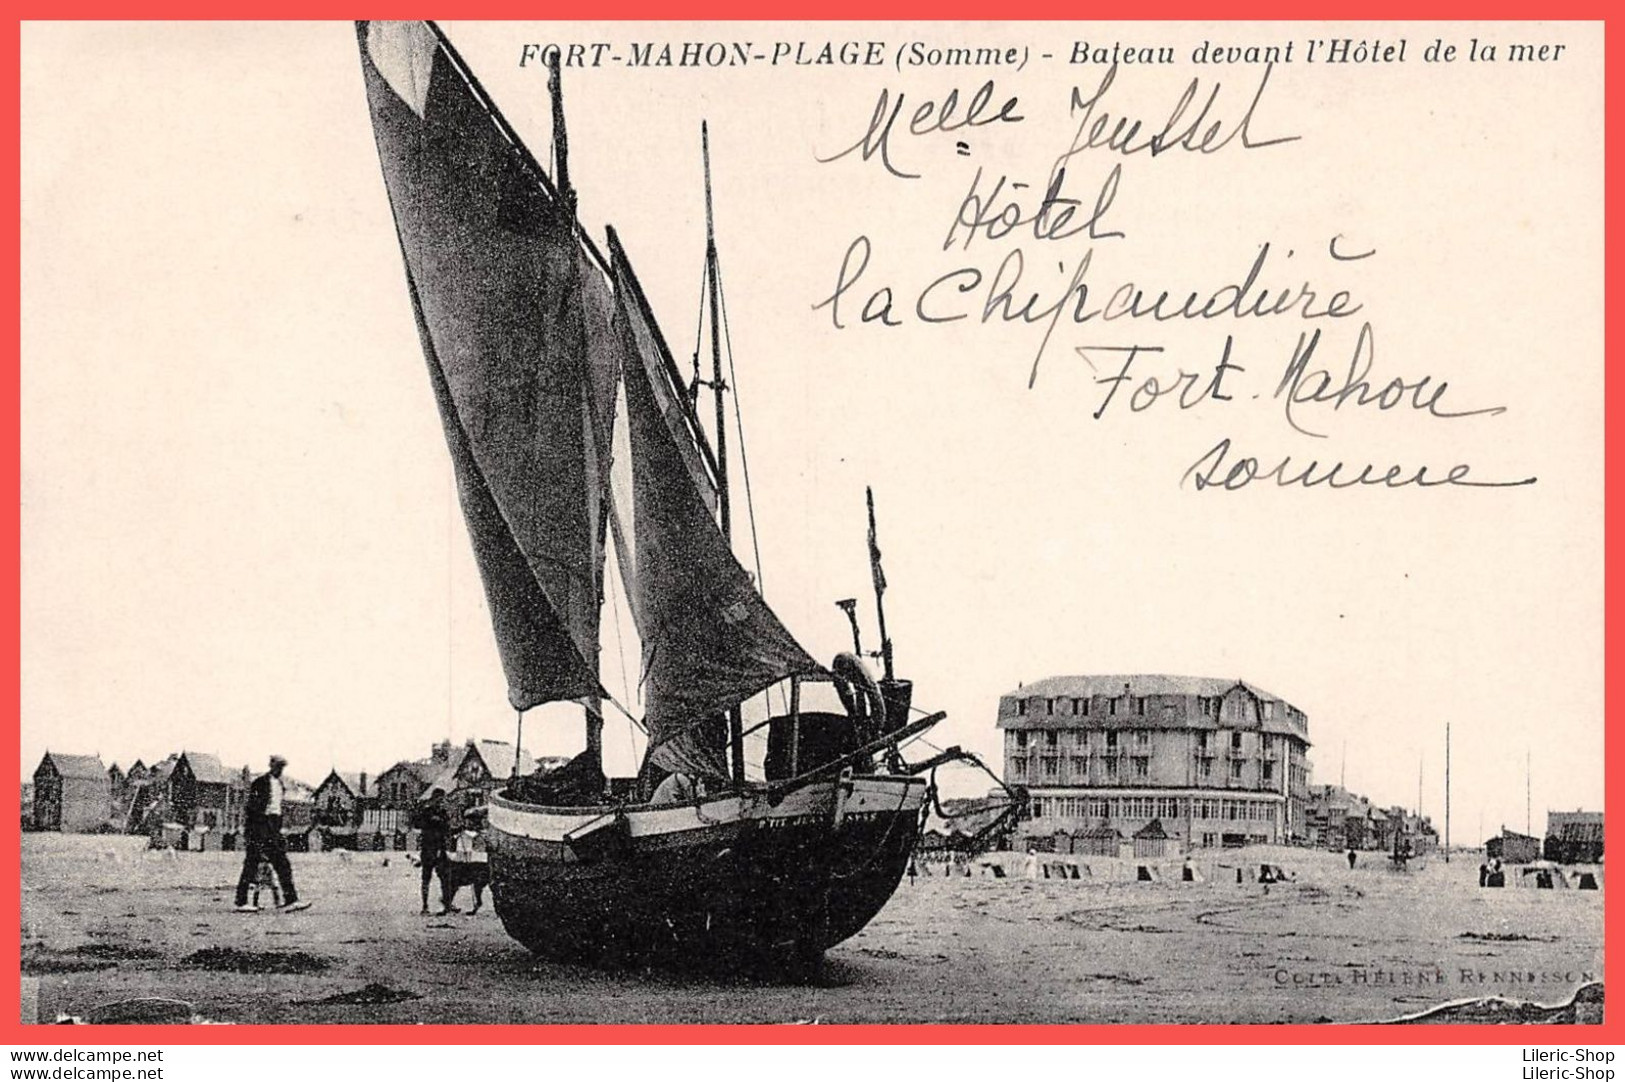 FORT-MAHON-PLAGE (Somme) - Bateau devant l'Hôtel de la mer
Melle Jeussel
Hôtel
la Chipaudière
Fort-Mahon
somme
Coll. HÉLÈNE RENNESSON
www.delcampe.net Lileric-Shop
www.delcampe.net Lileric-Shop